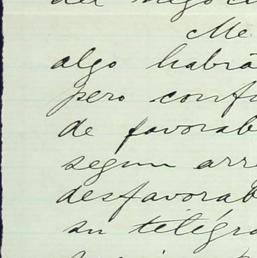 del negoci
Me
algo habrá
pero conf
de favorab
segun arr
desfavorab
su telégra